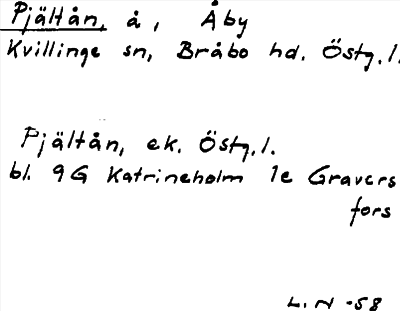 Pjältån, å, Åby
Kvillinge sn, Bråbo hd. Östg. l.
Pjältån, ek. Östg. l.
bl. 9G Katrineholm 1e Gravers
fors
L. N -58